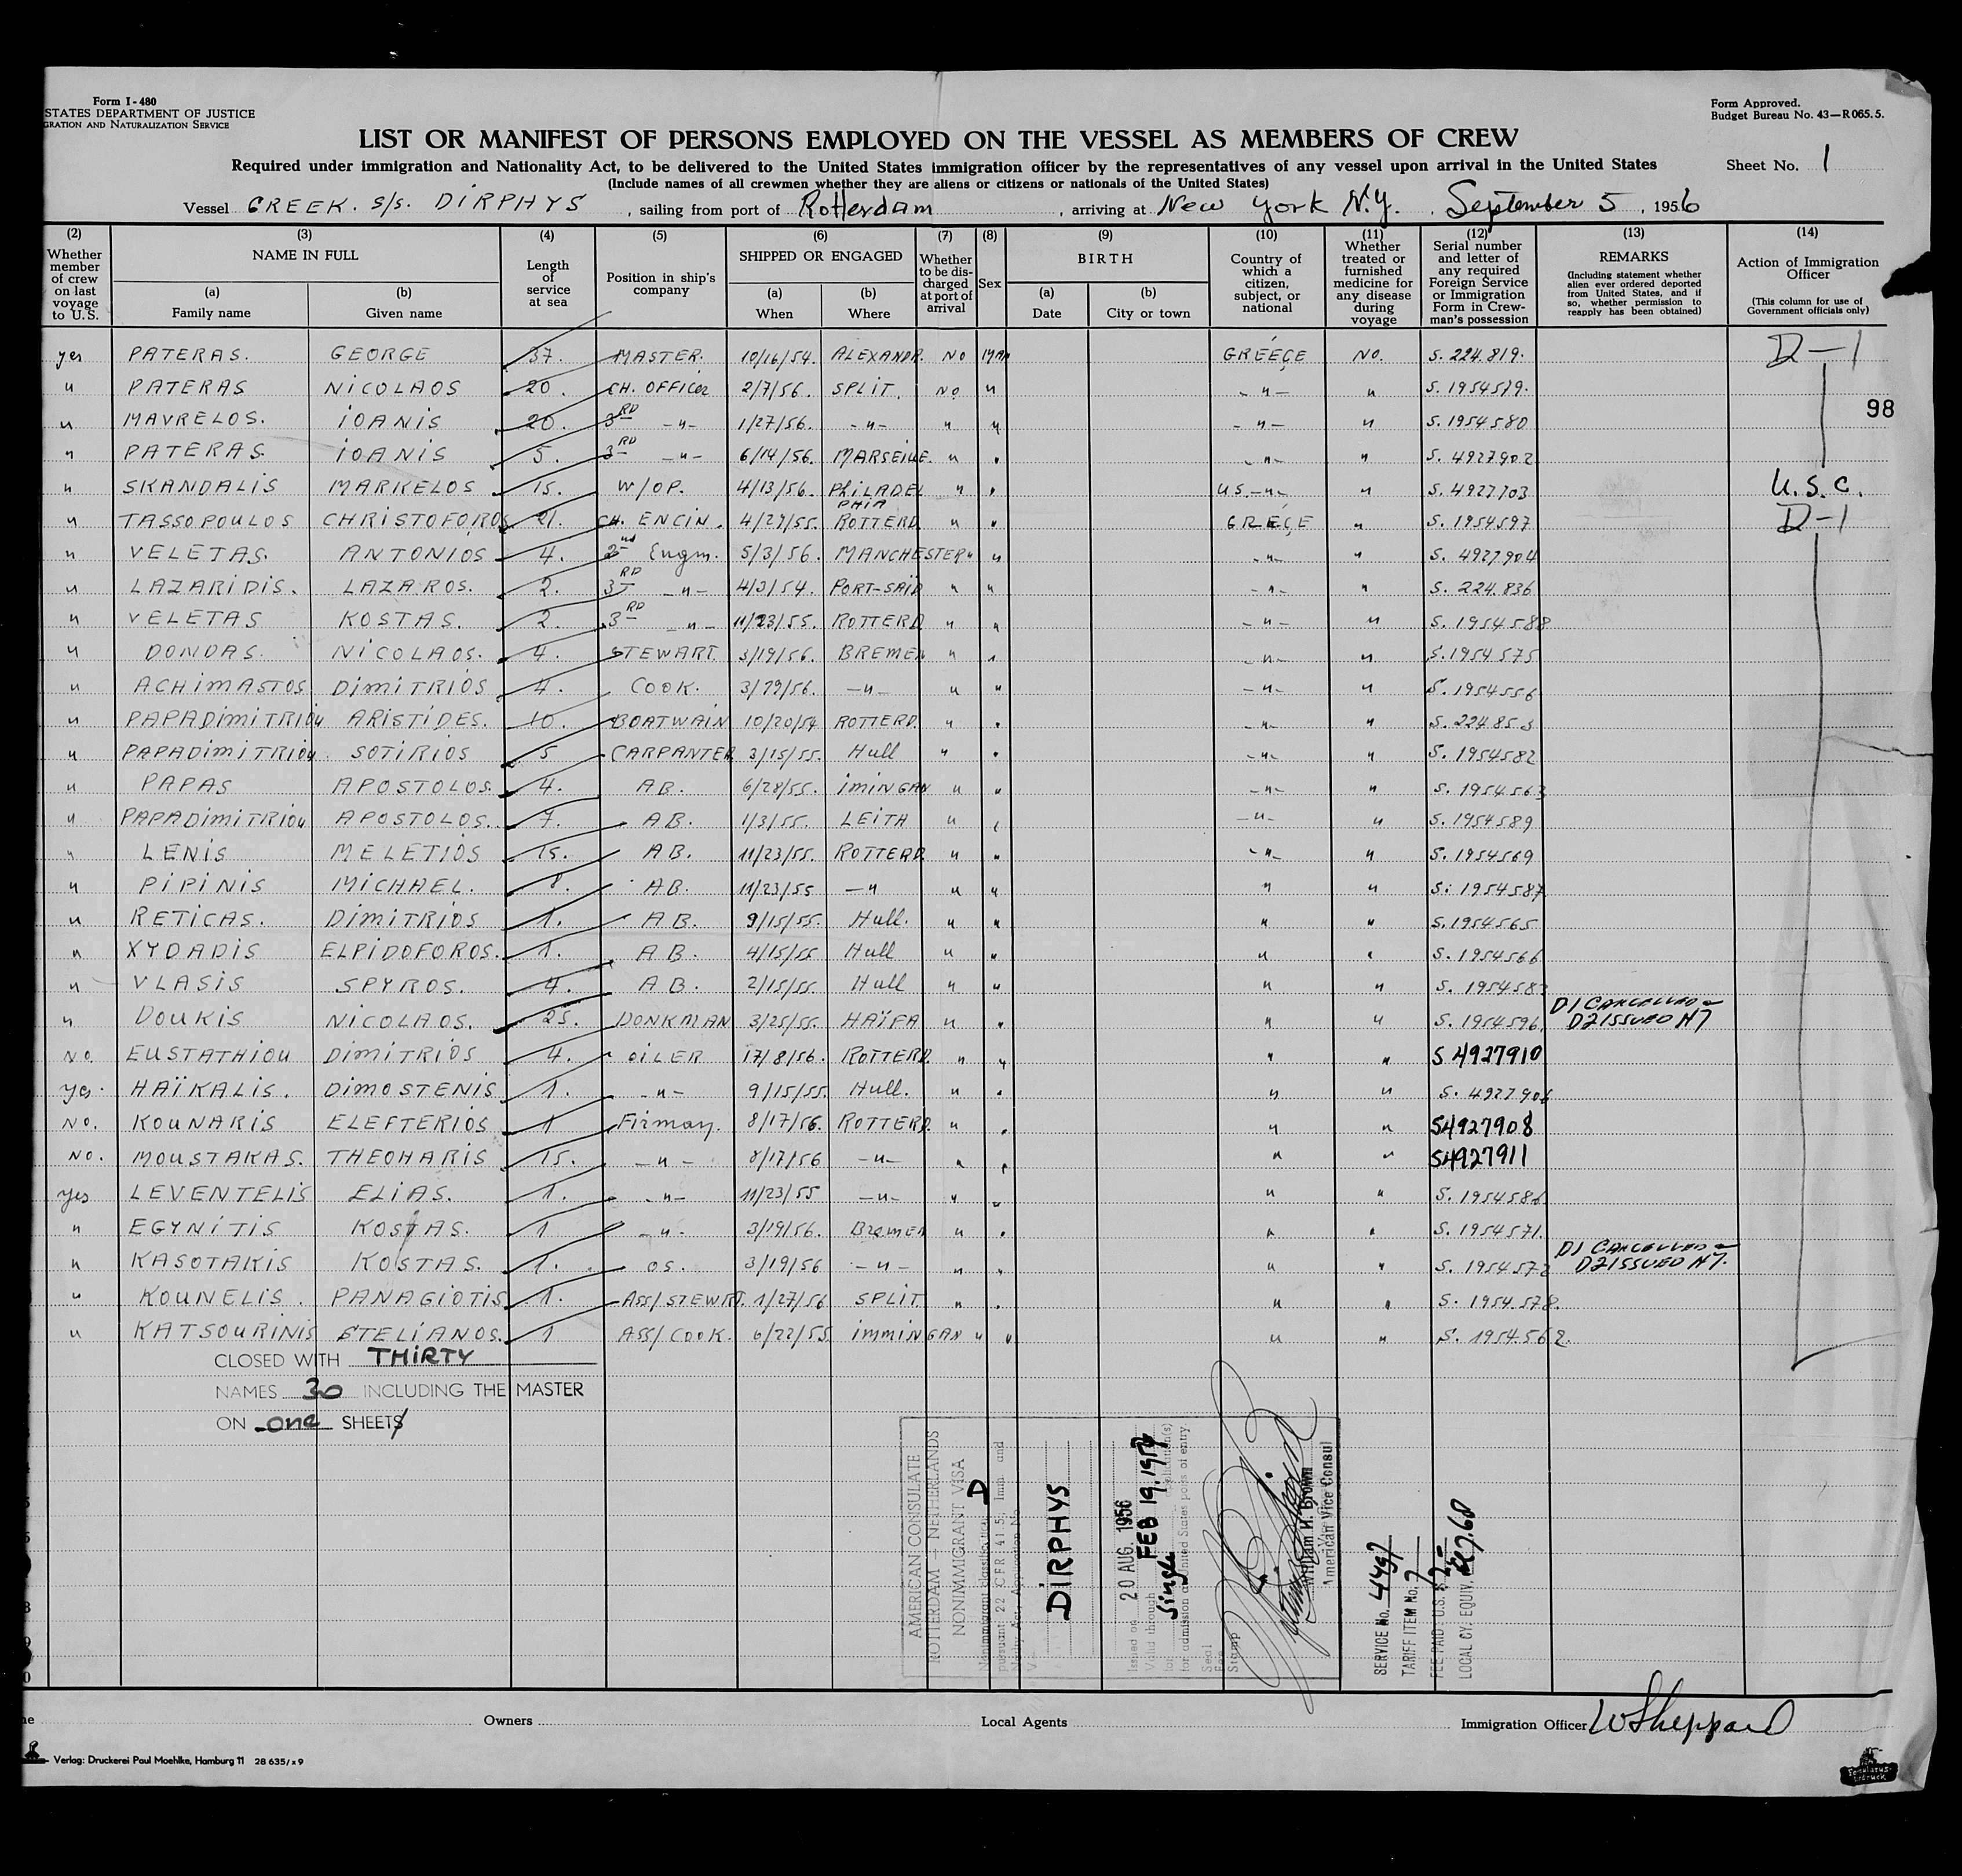 Form I - 480
STATES DEPARTMENT OF JUSTICE
GRATION AND NATURALIZATION SERVICE
Form Approved.
Budget Bureau No. 43—R065.5.
LIST OR MANIFEST OF PERSONS EMPLOYED ON THE VESSEL AS MEMBERS OF CREW
Required under immigration and Nationality Act, to be delivered to the United States immigration officer by the representatives of any vessel upon arrival in the United States
Sheet No. 1
(Include names of all crewmen whether they are aliens or citizens or nationals of the United States)
Vessel GREEK. S/S. DIRPHYS , sailing from port of Rotterdam , arriving at New York N.Y. , September 5 , 1956
(2) Whether member of crew on last voyage to U.S.
(3) NAME IN FULL
(a) Family name
(b) Given name
(4) Length of service at sea
(5) Position in ship's company
(6) SHIPPED OR ENGAGED
(a) When
(b) Where
(7) Whether to be discharged at port of arrival
(8) Sex
(9) BIRTH
(a) Date
(b) City or town
(10) Country of which a citizen, subject, or national
(11) Whether treated or furnished medicine for any disease during voyage
(12) Serial number and letter of any required Foreign Service or Immigration Form in Crewman's possession
(13) REMARKS
(Including statement whether alien ever ordered deported from United States, and if so, whether permission to reapply has been obtained)
(14) Action of Immigration Officer
(This column for use of Government officials only)
yes PATERAS. GEORGE 37. MASTER. 10/16/54. ALEXANDR. NO MAN GREECE NO. S. 224.819. D-1
" PATERAS NICOLAOS 20. CH. OFFICER 2/7/56. SPLIT. NO " -"- " S. 1954579.
98
" MAVRELOS. IOANIS 20. 3RD -"- 1/27/56. -"- " " -"- " S. 1954580
" PATERAS IOANIS 5. 3RD -"- 6/14/56. MARSEILLE. " " -"- " S. 4927902
" SKANDALIS MARKELOS 15. W/OP. 4/13/56. PHILADELPHIA " " US -"- " S. 4927703 U.S.C.
" TASSOPOULOS CHRISTOFOROS 21. CH. ENGIN. 4/27/55. ROTTERD " " GREECE " S. 1954597 D-1
" VELETAS. ANTONIOS 4. 2nd Engin. 5/3/56. MANCHESTER " " -"- " S. 4927904
" LAZARIDIS. LAZAROS. 2. 3RD -"- 4/3/54. PORT-SAÏD " " -"- " S. 224.836
" VELETAS KOSTAS. 2. 3RD -"- 11/23/55. ROTTERD " " -"- " S. 1954588
" DONDAS. NICOLAOS. 4. STEWART. 3/19/56. BREMEN " " -"- " S. 1954575
" ACHIMASTOS DIMITRIOS 4. COOK. 3/19/56. -"- " " -"- " S. 1954556
" PAPADIMITRIOU ARISTIDES. 10. BOATWAIN 10/20/54 ROTTERD. " " -"- " S. 224.853
" PAPADIMITRIOU SOTIRIOS 5 CARPANTER 3/15/55. Hull " " -"- " S. 1954582
" PAPAS APOSTOLOS. 4. AB. 6/28/55. IMINGAN " " -"- " S. 1954563
" PAPADIMITRIOU APOSTOLOS. 7. AB. 1/3/55. LEITH " " -"- " S. 1954589
" LENIS MELETIOS 15. AB. 11/23/55. ROTTERD " " -"- " S. 1954569
" PIPINIS MICHAEL. 8. AB. 11/23/55 -" " " " " S. 1954587
" RETICAS. DIMITRIOS 1. AB. 9/15/55. Hull. " " " " S. 1954565
" XYDADIS ELPIDOFOROS. 1. AB. 4/15/55 Hull " " " " S. 1954566
" VLASIS SPYROS. 4. AB. 2/15/55. Hull " " " " S. 1954583
" DOUKIS NICOLAOS. 25. DONKMAN 3/25/55. HAÏFA " " " " S. 1954596. D1 CANCELLED
D2 ISSUED
NO. EUSTATHIOU DIMITRIOS 4. OILER 17/8/56. ROTTERD. " " " " S 4927910
yes. HAÏKALIS. DIMOSTENIS 1. -"- 9/15/55. Hull. " " " " S. 4927906
NO. KOUNARIS ELEFTERIOS 1 Firman. 8/17/56. ROTTERD. " " " " S4927908
NO. MOUSTAKAS. THEOHARIS 15. -"- 8/17/56 -"- " " " " S4927911
yes LEVENTELIS ELIAS. 1. -"- 11/23/55 -"- " " " " S. 1954586
" EGYNITIS KOSTAS. 1 -"- 3/19/56. Bremen " " " " S. 1954571.
" KASOTAKIS KOSTAS. 1. OS. 3/19/56 -"- " " " " S. 1954572 D1 CANCELLED
D2 ISSUED
" KOUNELIS. PANAGIOTIS 1. ASS/STEWRT. 1/27/56 SPLIT " " " " S. 1954578.
" KATSOURINIS STELIANOS. 1 ASS/COOK. 6/22/55 IMMINGAN " " " " S. 1954562.
CLOSED WITH THIRTY
NAMES 30 INCLUDING THE MASTER
ON one SHEETS
AMERICAN CONSULATE
ROTTERDAM - NETHERLANDS
NONIMMIGRANT VISA
Nonimmigrant classification D
pursuant 22 CFR 41.5. Imm and
DIRPHYS
Issued on 20 AUG. 1956
Valid through FEB 19, 1957
for Single application(s)
for admission at United States ports of entry.
Seal
Fee
Stamp
William H. Brown
American Vice Consul
SERVICE No. 4497
TARIFF ITEM No. 7
FEE PAID U.S. $
LOCAL CY. EQUIV.
Owners
Local Agents
Immigration Officer WSheppard
Verlag: Druckerei Paul Moehlke, Hamburg 11 28 635/x9